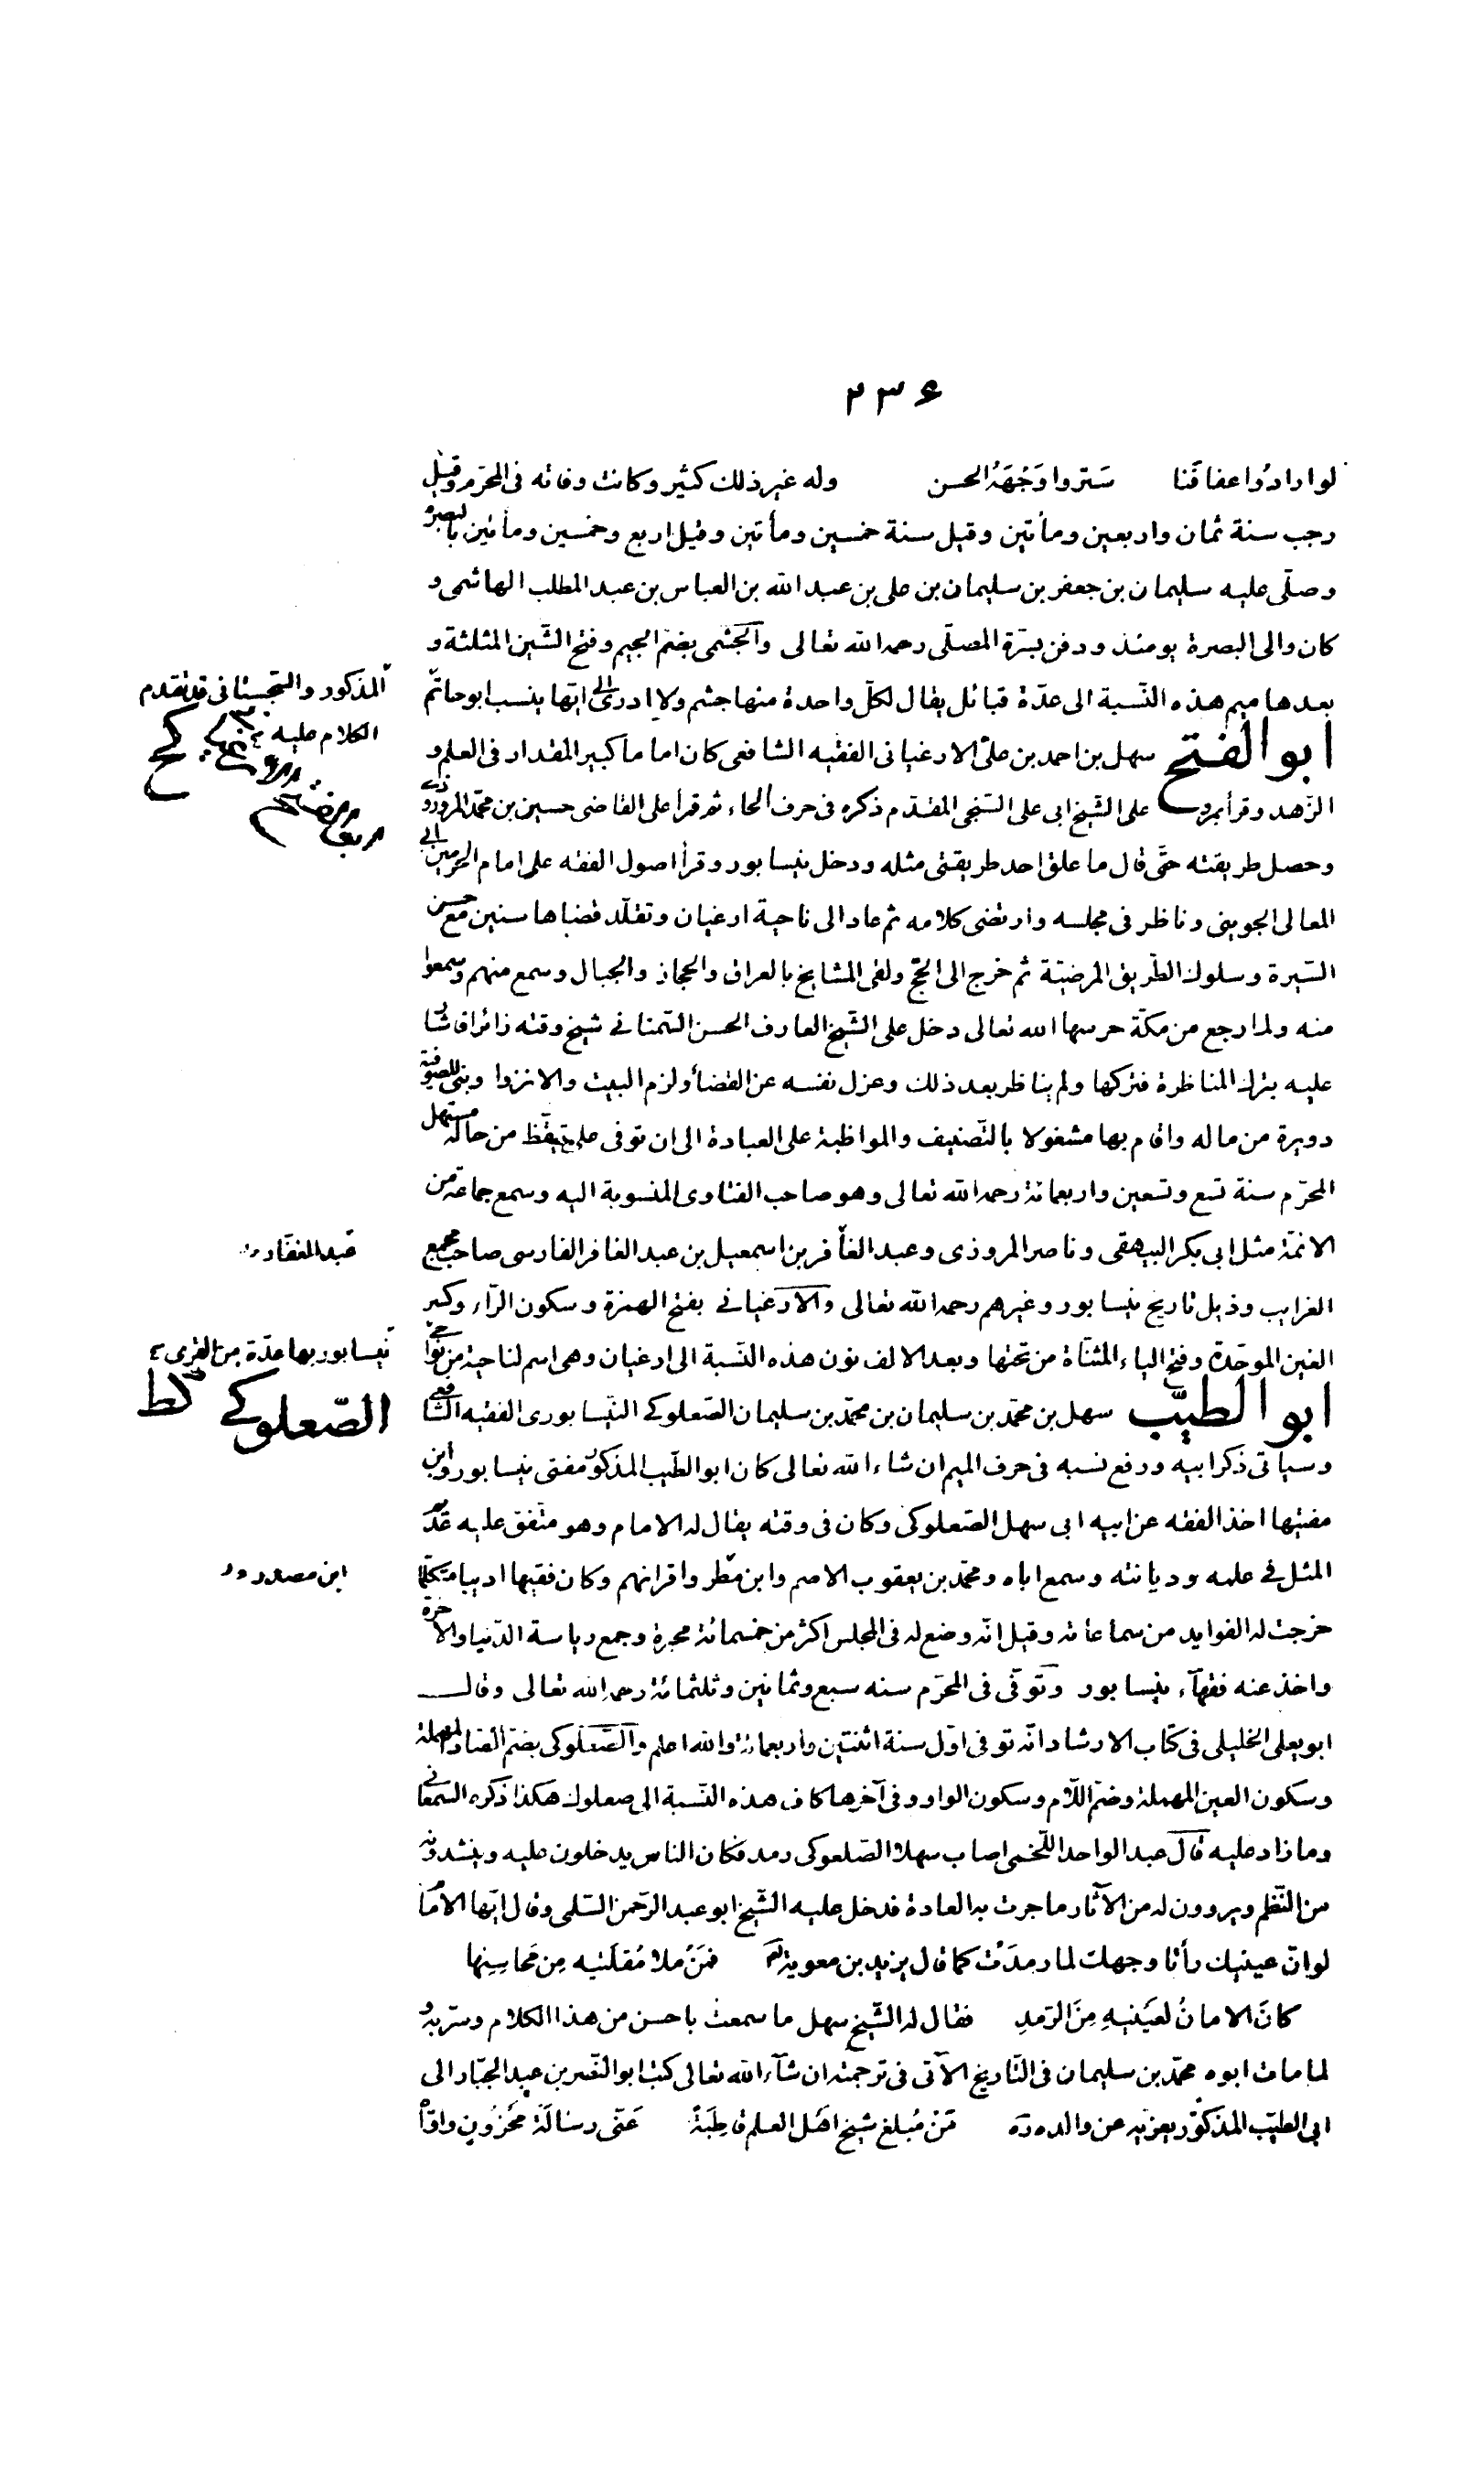 ٢٣۶
لو ارادُوا عفافَنا سَتروا وَجْهَهُ الحسن وله غير ذلك كثير وكانت وفاته فى المحرّم وقيل
رجب سنة ثمان واربعين ومأتين وقيل سنة خمسين ومأتين وقيل اربع وخمسين ومأتين بالبصرة
وصلّى عليه سليمان بن جعفر بن سليمان بن على بن عبد الله بن العباس بن عبد المطلب الهاشمى و
كان والى البصرة يومئذ ودفن بسرّة المصلّى رحمه الله تعالى والجُشمى بضم الجيم وفتح الشّين المثلثة و
بعدها ميم هذه النّسبة الى عدّة قبائل يقال لكلّ واحدة منها جشم ولا ادرى الى ايّها ينسب ابو حاتم
المذكور والسّجستانى قد تقدم
الكلام عليه
ابو الفتح سهل بن احمد بن على الارغيانى الفقيه الشافعى كان اماما كبير المقدار فى العلم و
الزّهد وقرأ بمرو على الشّيخ ابى على السّنجى المقدّم ذكره فى حرف الحاء ثم قرأ على القاضى حسين بن محمّد المروروذى
وحصل طريقته حتّى قال ما علق احد طريقتى مثله ودخل نيسابور وقرأ اصول الفقه على امام الحرمين ابى
المعالى الجوينى وناظر فى مجلسه وارتضى كلامه ثم عاد الى ناحية ارغيان وتقلّد قضاها سنين مع حسن
السّيرة وسلوك الطّريق المرضيّة ثم خرج الى الحجّ ولقى المشايخ بالعراق والحجاز والجبال وسمع منهم وسمعوا
منه ولما رجع من مكّة حرسها الله تعالى دخل على الشّيخ العارف الحسن السّمنانى شيخ وقته زائرا فاشار
عليه بترك المناظرة فتركها ولم يناظر بعد ذلك وعزل نفسه عن القضأ ولزم البيت والانزوا وبنى للصّوفية
دويرة من ماله واقام بها مشغولا بالتّصنيف والمواظبة على العبادة الى ان توفى على تيقّظ من حاله مستهل
المحرّم سنة تسع وتسعين واربعمائة رحمه الله تعالى وهو صاحب الفتاوى المنسوبة اليه وسمع جماعة من
الائمّة مثل ابى بكر البيهقى وناصر المروذى وعبد الغافر بن اسمعيل بن عبد الغافر الفارسى صاحب مجمع
الغرايب وذيل تاريخ نيسابور وغيرهم رحمه الله تعالى والارغيانى بفتح الهمزة وسكون الرّاء وكسر
الغين الموحّدة وفتح الياء المثنّاة من تحتها وبعد الالف نون هذه النّسبة الى ارغيان وهى اسم لناحية من نواحى
نيسابور بها عدّة من القرى
ابو الطيّب سهل بن محمّد بن سليمان بن محمّد بن سليمان الصّعلوكى النّيسابورى الفقيه الشّافعى
الصّعلوكى
وسيأتى ذكر ابيه ورفع نسبه فى حرف الميم ان شاء الله تعالى كان ابو الطّيب المذكور مفتى نيسابور وابن
مفتيها اخذ الفقه عن ابيه ابى سهل الصّعلوكى وكان فى وقته يقال له الامام وهو متّفق عليه
المثل فى علمه وديانته وسمع اباه ومحمّد بن يعقوب الاصم وابن مطر واقرانهم وكان فقيها اديبا متكلّما
خرجت له الفوايد من سماعاته وقيل انّه وضع له فى المجلس اكثر من خمسمائة محبرة وجمع رياسة الدّنيا والآخرة
واخذ عنه فقهآء نيسابور وتوفّى فى المحرّم سنه سبع وثمانين وثلثمائة رحمه الله تعالى وقال
ابو يعلى الخليلى فى كتاب الارشاد انّه توفى اوّل سنة اثنتين واربعمائة والله اعلم والصّعلوكى بضمّ الصّاد المهملة
وسكون العين المهملة وضمّ اللّام وسكون الواو وفى آخرها كاف هذه النّسبة الى صعلوك هكذا ذكره السّمعانى
وما زاد عليه قال عبد الواحد اللّخمى اصاب سهلا الصّلعوكى رمد فكان الناس يدخلون عليه وينشدونه
من النّظم ويروون له من الآثار ما جرت به العادة فدخل عليه الشّيخ ابو عبد الرّحمن السّلمى وقال ايّها الامام
لو انّ عينيك رأتا وجهك لما رمدَت كما قال يزيد بن معوية فمَن مُلا مُقلَتيه مِن مَحاسِنِها
كانَ الامانُ لعَينيهِ مِنَ الرّمدِ فقال له الشّيخ سهل ما سمعت باحسن من هذا الكلام وسرّ به و
لما مات ابوه محمّد بن سليمان فى التّاريخ الآتى فى ترجمته ان شآء الله تعالى كتب ابو النّصر بن عبد الجبّار الى
ابى الطيّب المذكور يعزيه عن والده مَنْ مُبلغ شيخ اهَل العلم قاطِبَةً عَنّى رسَالَةَ مَحْزُونٍ واوّاه